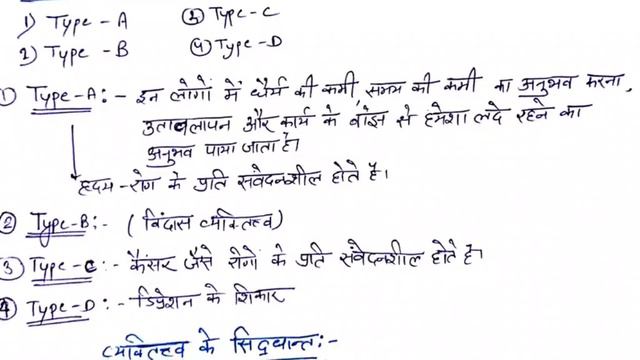 1) Type - A
3) Type - C
2) Type - B
4) Type - D
① Type-A:- इन लोगों में धैर्य की कमी, समय की कमी का अनुभव करना,
उतावलापन और कार्य के बोझ से हमेशा लदे रहने का
अनुभव पाया जाता है।
हृदय-रोग के प्रति संवेदनशील होते है।
② Type-B:- (बिंदास व्यक्तित्व)
3 Type-C:- कैंसर जैसे रोगों के प्रति संवेदनशील होते है।
4 Type-D:- डिप्रेशन के शिकार
व्यक्तित्व के सिद्धान्त:-